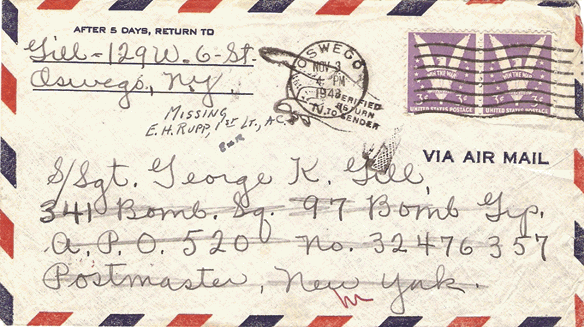 AFTER 5 DAYS, RETURN TO
Gill - 129 W. 6 - St.
Oswego, N.Y.
OSWEGO
NOV 3
4 PM
1943
VERIFIED
RETURN
TO SENDER
WIN THE WAR
3¢
UNITED STATES POSTAGE
WIN THE WAR
3¢
UNITED STATES POSTAGE
Missing,
E.H. RUPP, 1st Lt., A.C.
VIA AIR MAIL
S/Sgt. George K. Gill,
341 Bomb. Sq. 97 Bomb Grp.
A.P.O. 520 No. 32476357
Postmaster, New York.